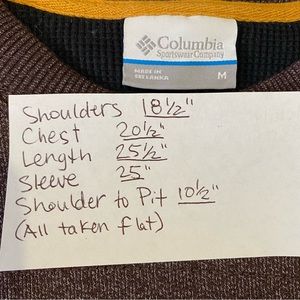 Columbia
Sportswear Company
MADE IN
SRI LANKA
M
Shoulders 18½"
Chest 20½"
Length 25½"
Sleeve 25"
Shoulder to Pit 10½"
(All taken flat)